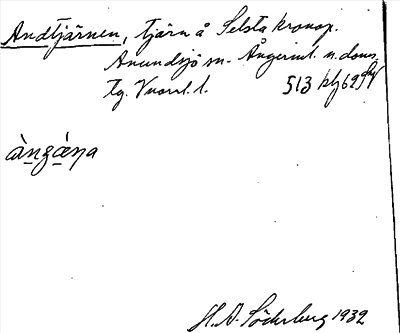 Andtjärnen, tjärn å Selsta kronop.
Anundsjö sn. Ångerml. n. doms.
tg. Vnorrl. l. 513
àngǽna
H. A. Söderberg 1932